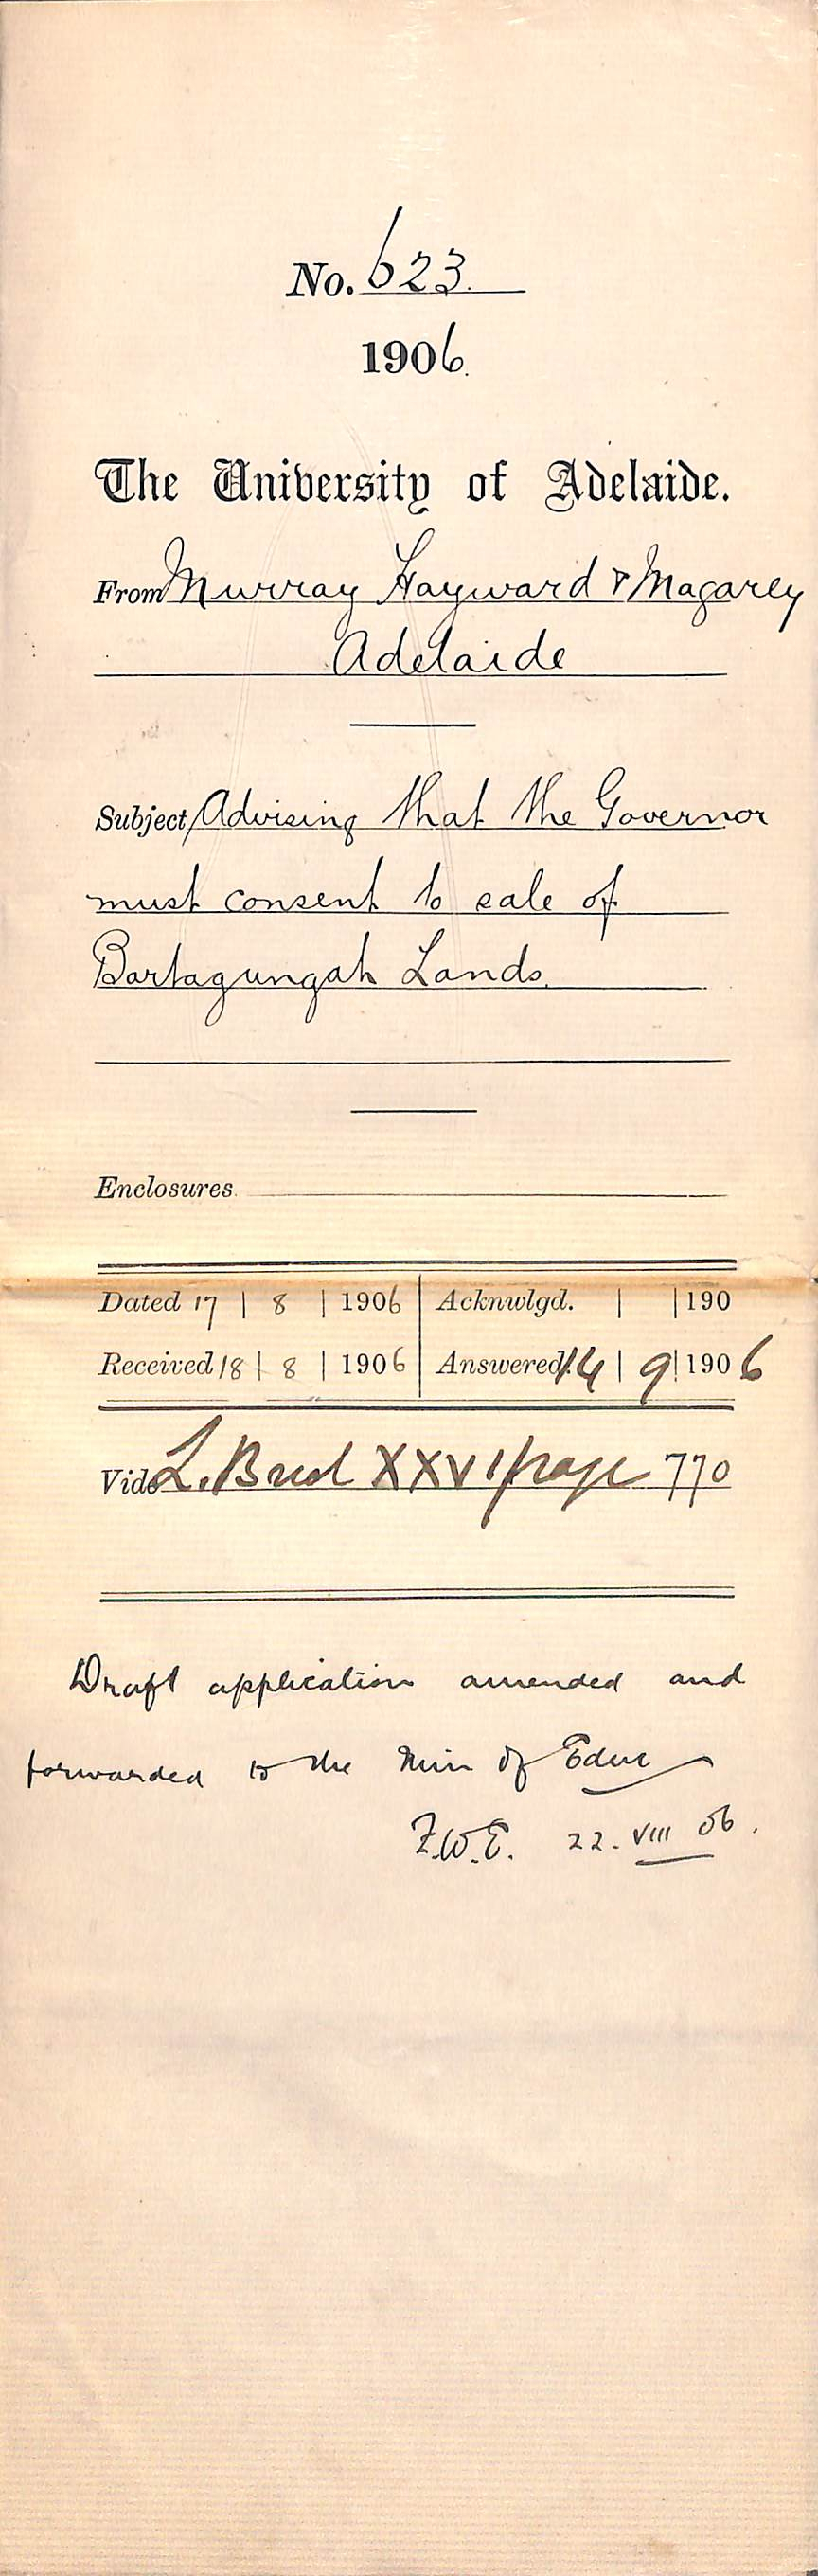 No. 623.
1906.
The University of Adelaide.
From Murray Hayward & Magarey
Adelaide
Subject Advising that the Governor
must consent to sale of
Bartagungah Lands.
Enclosures
Dated 17 | 8 | 1906 | Acknwlgd. | | 190
Received 18 | 8 | 1906 | Answered 14 | 9 | 1906
Vide L. XXVI page 770
Draft application amended and
forwarded to the Min of Educ
F.W.E. 22. VIII 06.